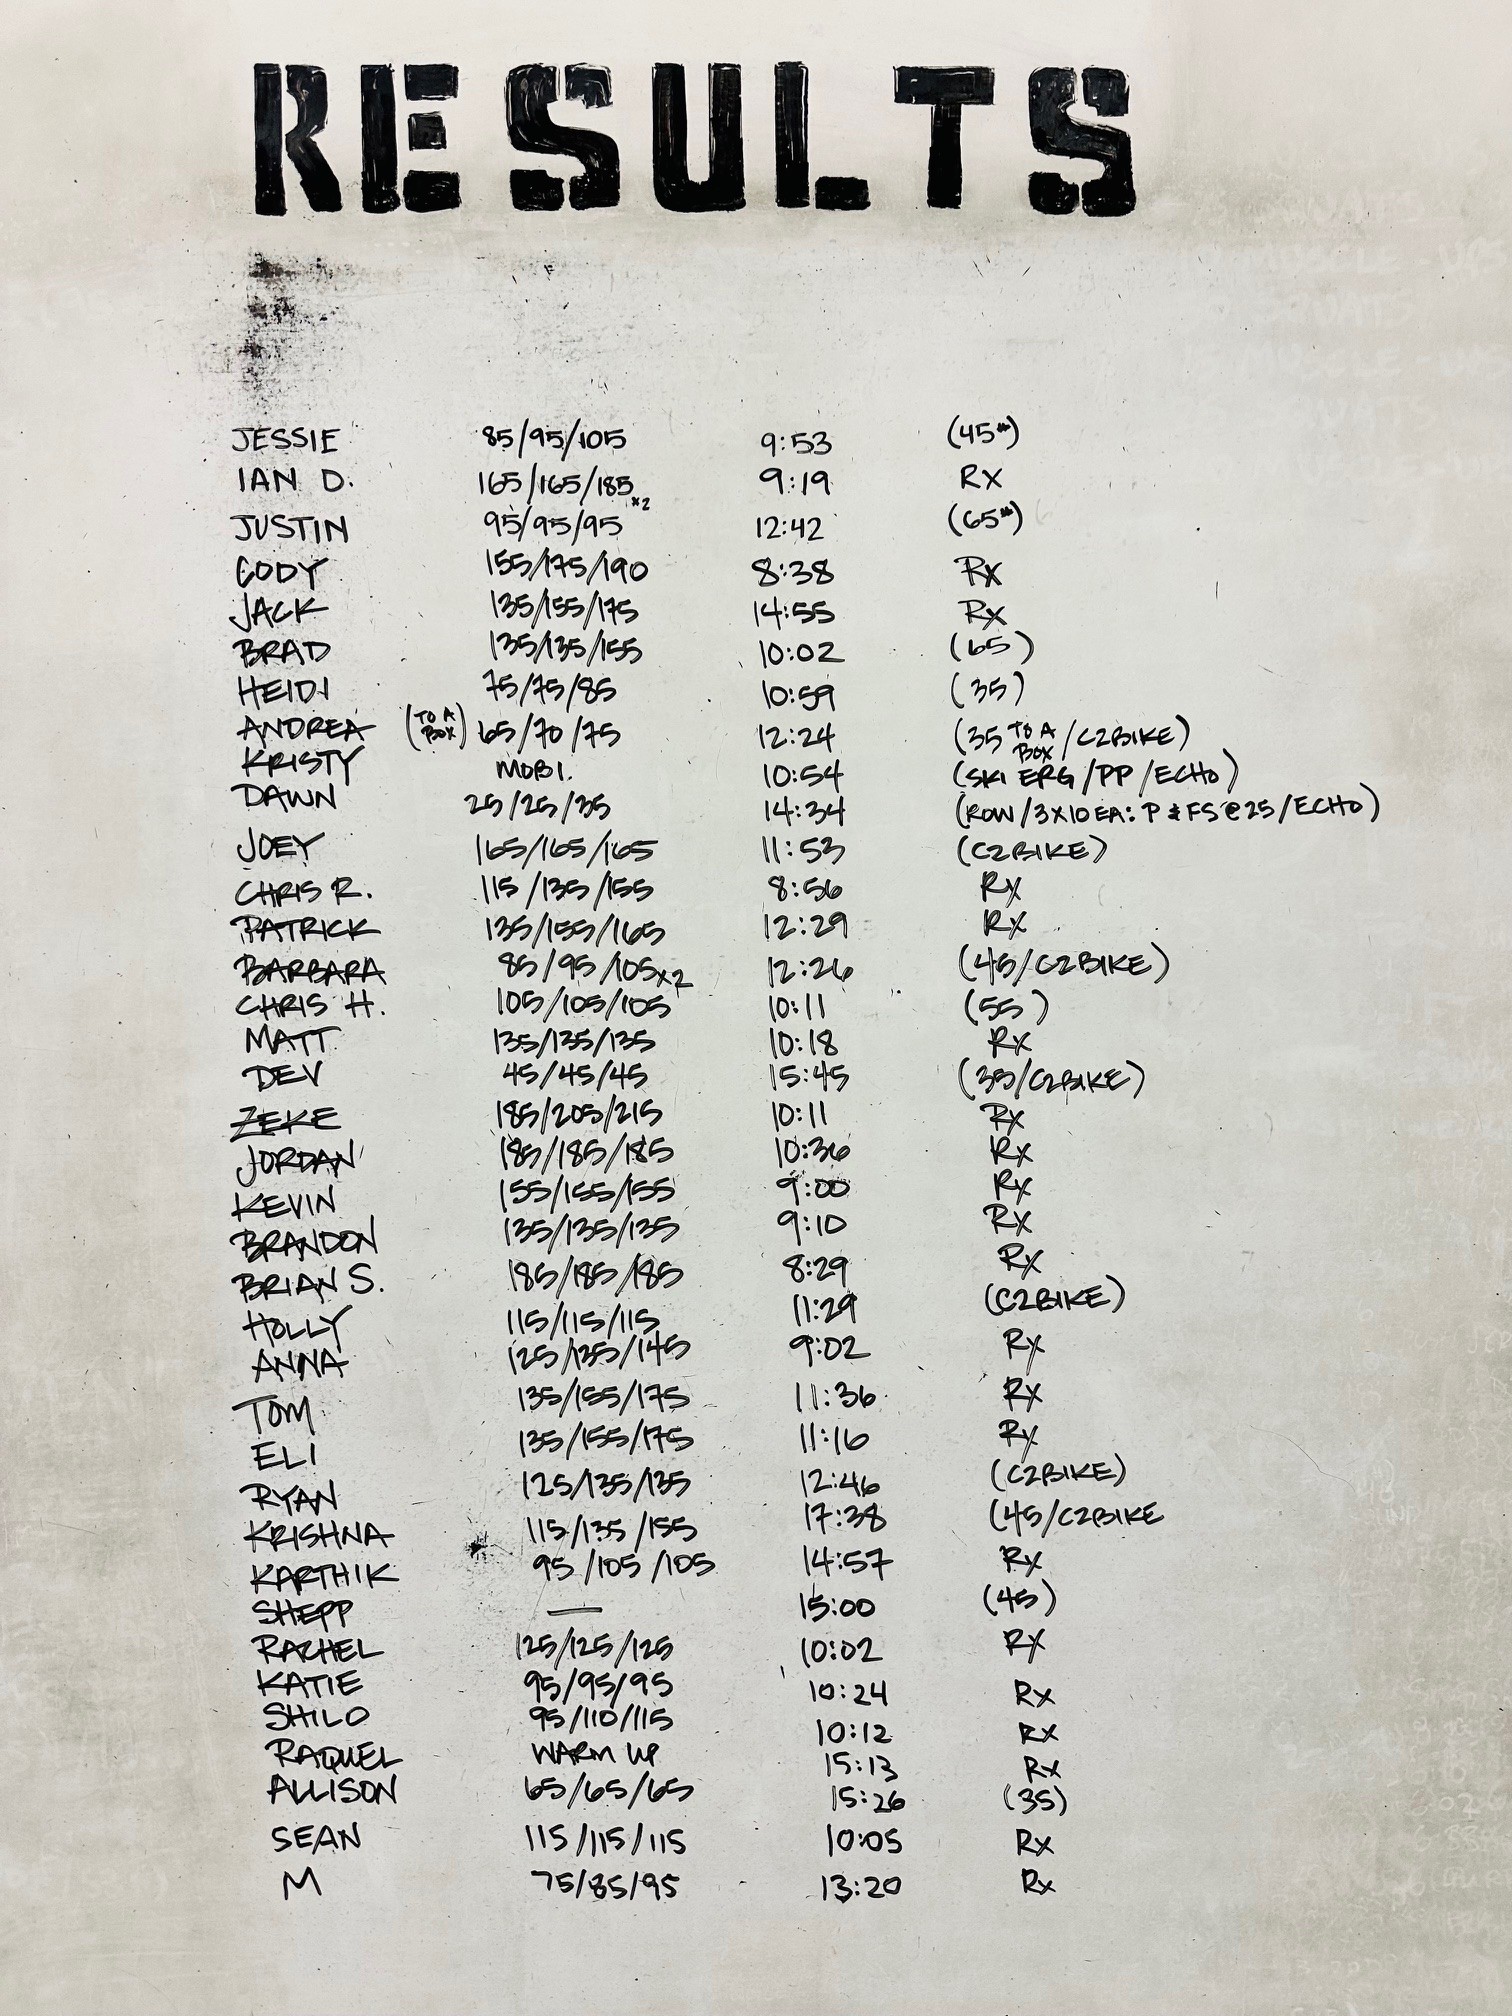 RESULTS
JESSIE 85/95/105 9:53 (45#)
IAN D. 165/165/185 x2 9:19 Rx
JUSTIN 95/95/95 12:42 (65#)
CODY 155/175/190 8:38 Rx
JACK 135/155/175 14:55 Rx
BRAD 135/135/155 10:02 (65)
HEIDI 75/75/85 10:59 (35)
ANDREA (TO A BOX) 65/70/75 12:24 (35 TO A BOX/C2BIKE)
KRISTY MOBI. 10:54 (SKI ERG/PP/ECHO)
DAWN 25/25/35 14:34 (ROW/3X10 EA: P & FS @ 25/ECHO)
JOEY 165/165/165 11:53 (C2BIKE)
CHRIS R. 115/135/155 8:56 Rx
PATRICK 135/155/165 12:29 Rx
BARBARA 85/95/105x2 12:26 (45/C2BIKE)
CHRIS H. 105/105/105 10:11 (55)
MATT 135/135/135 10:18 Rx
DEV 45/45/45 15:45 (35/C2BIKE)
ZEKE 185/205/215 10:11 Rx
JORDAN 185/185/185 10:36 Rx
KEVIN 155/155/155 9:00 Rx
BRANDON 135/135/135 9:10 Rx
BRIAN S. 185/185/185 8:29 Rx
HOLLY 115/115/115 11:29 (C2BIKE)
ANNA 125/135/145 9:02 Rx
TOM 135/155/175 11:36 Rx
ELI 135/155/175 11:16 Rx
RYAN 125/135/135 12:46 (C2BIKE)
KRISHNA 115/135/155 17:38 (45/C2BIKE
KARTHIK 95/105/105 14:57 Rx
SHEPP — 15:00 (45)
RACHEL 125/125/125 10:02 Rx
KATIE 95/95/95 10:24 Rx
SHILO 95/110/115 10:12 Rx
RAQUEL WARM UP 15:13 Rx
ALLISON 65/65/65 15:26 (35)
SEAN 115/115/115 10:05 Rx
M 75/85/95 13:20 Rx